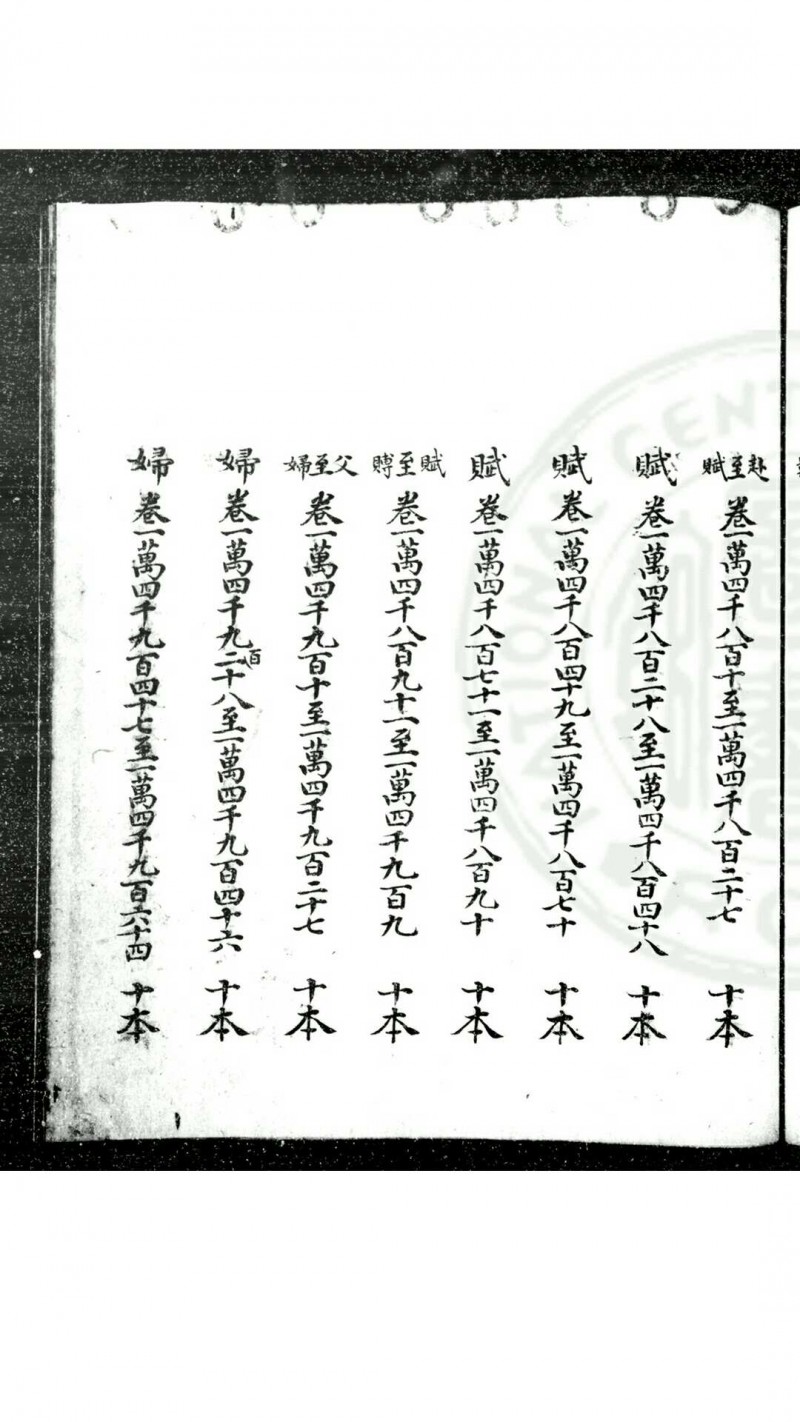 赴至賦 卷一萬四千八百十至一萬四千八百二十七 十本
賦 卷一萬四千八百二十八至一萬四千八百四十八 十本
賦 卷一萬四千八百四十九至一萬四千八百七十 十本
賦 卷一萬四千八百七十一至一萬四千八百九十 十本
賦至賻 卷一萬四千八百九十一至一萬四千九百九 十本
父至婦 卷一萬四千九百十至一萬四千九百二十七 十本
婦 卷一萬四千九百二十八至一萬四千九百四十六 十本
婦 卷一萬四千九百四十七至一萬四千九百六十四 十本